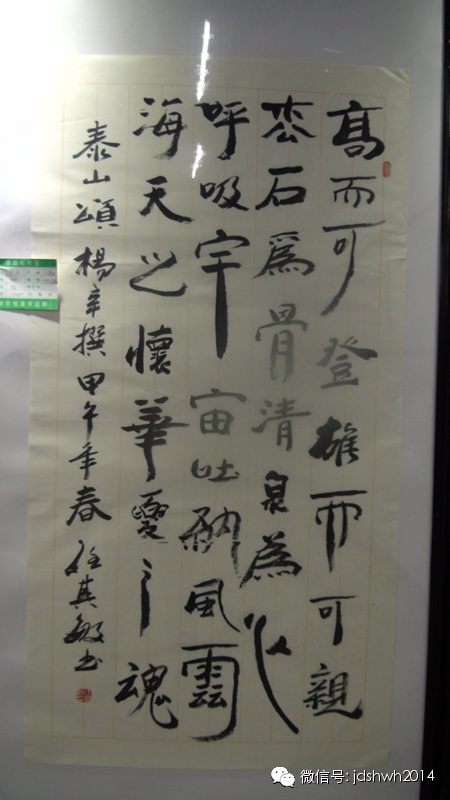 高而可登雄而可親
松石爲骨清泉為心
呼吸宇宙吐納風雲
海天之懷華夏之魂
泰山頌 楊辛撰 甲午年春 任其敏书
微信号: jdshwh2014